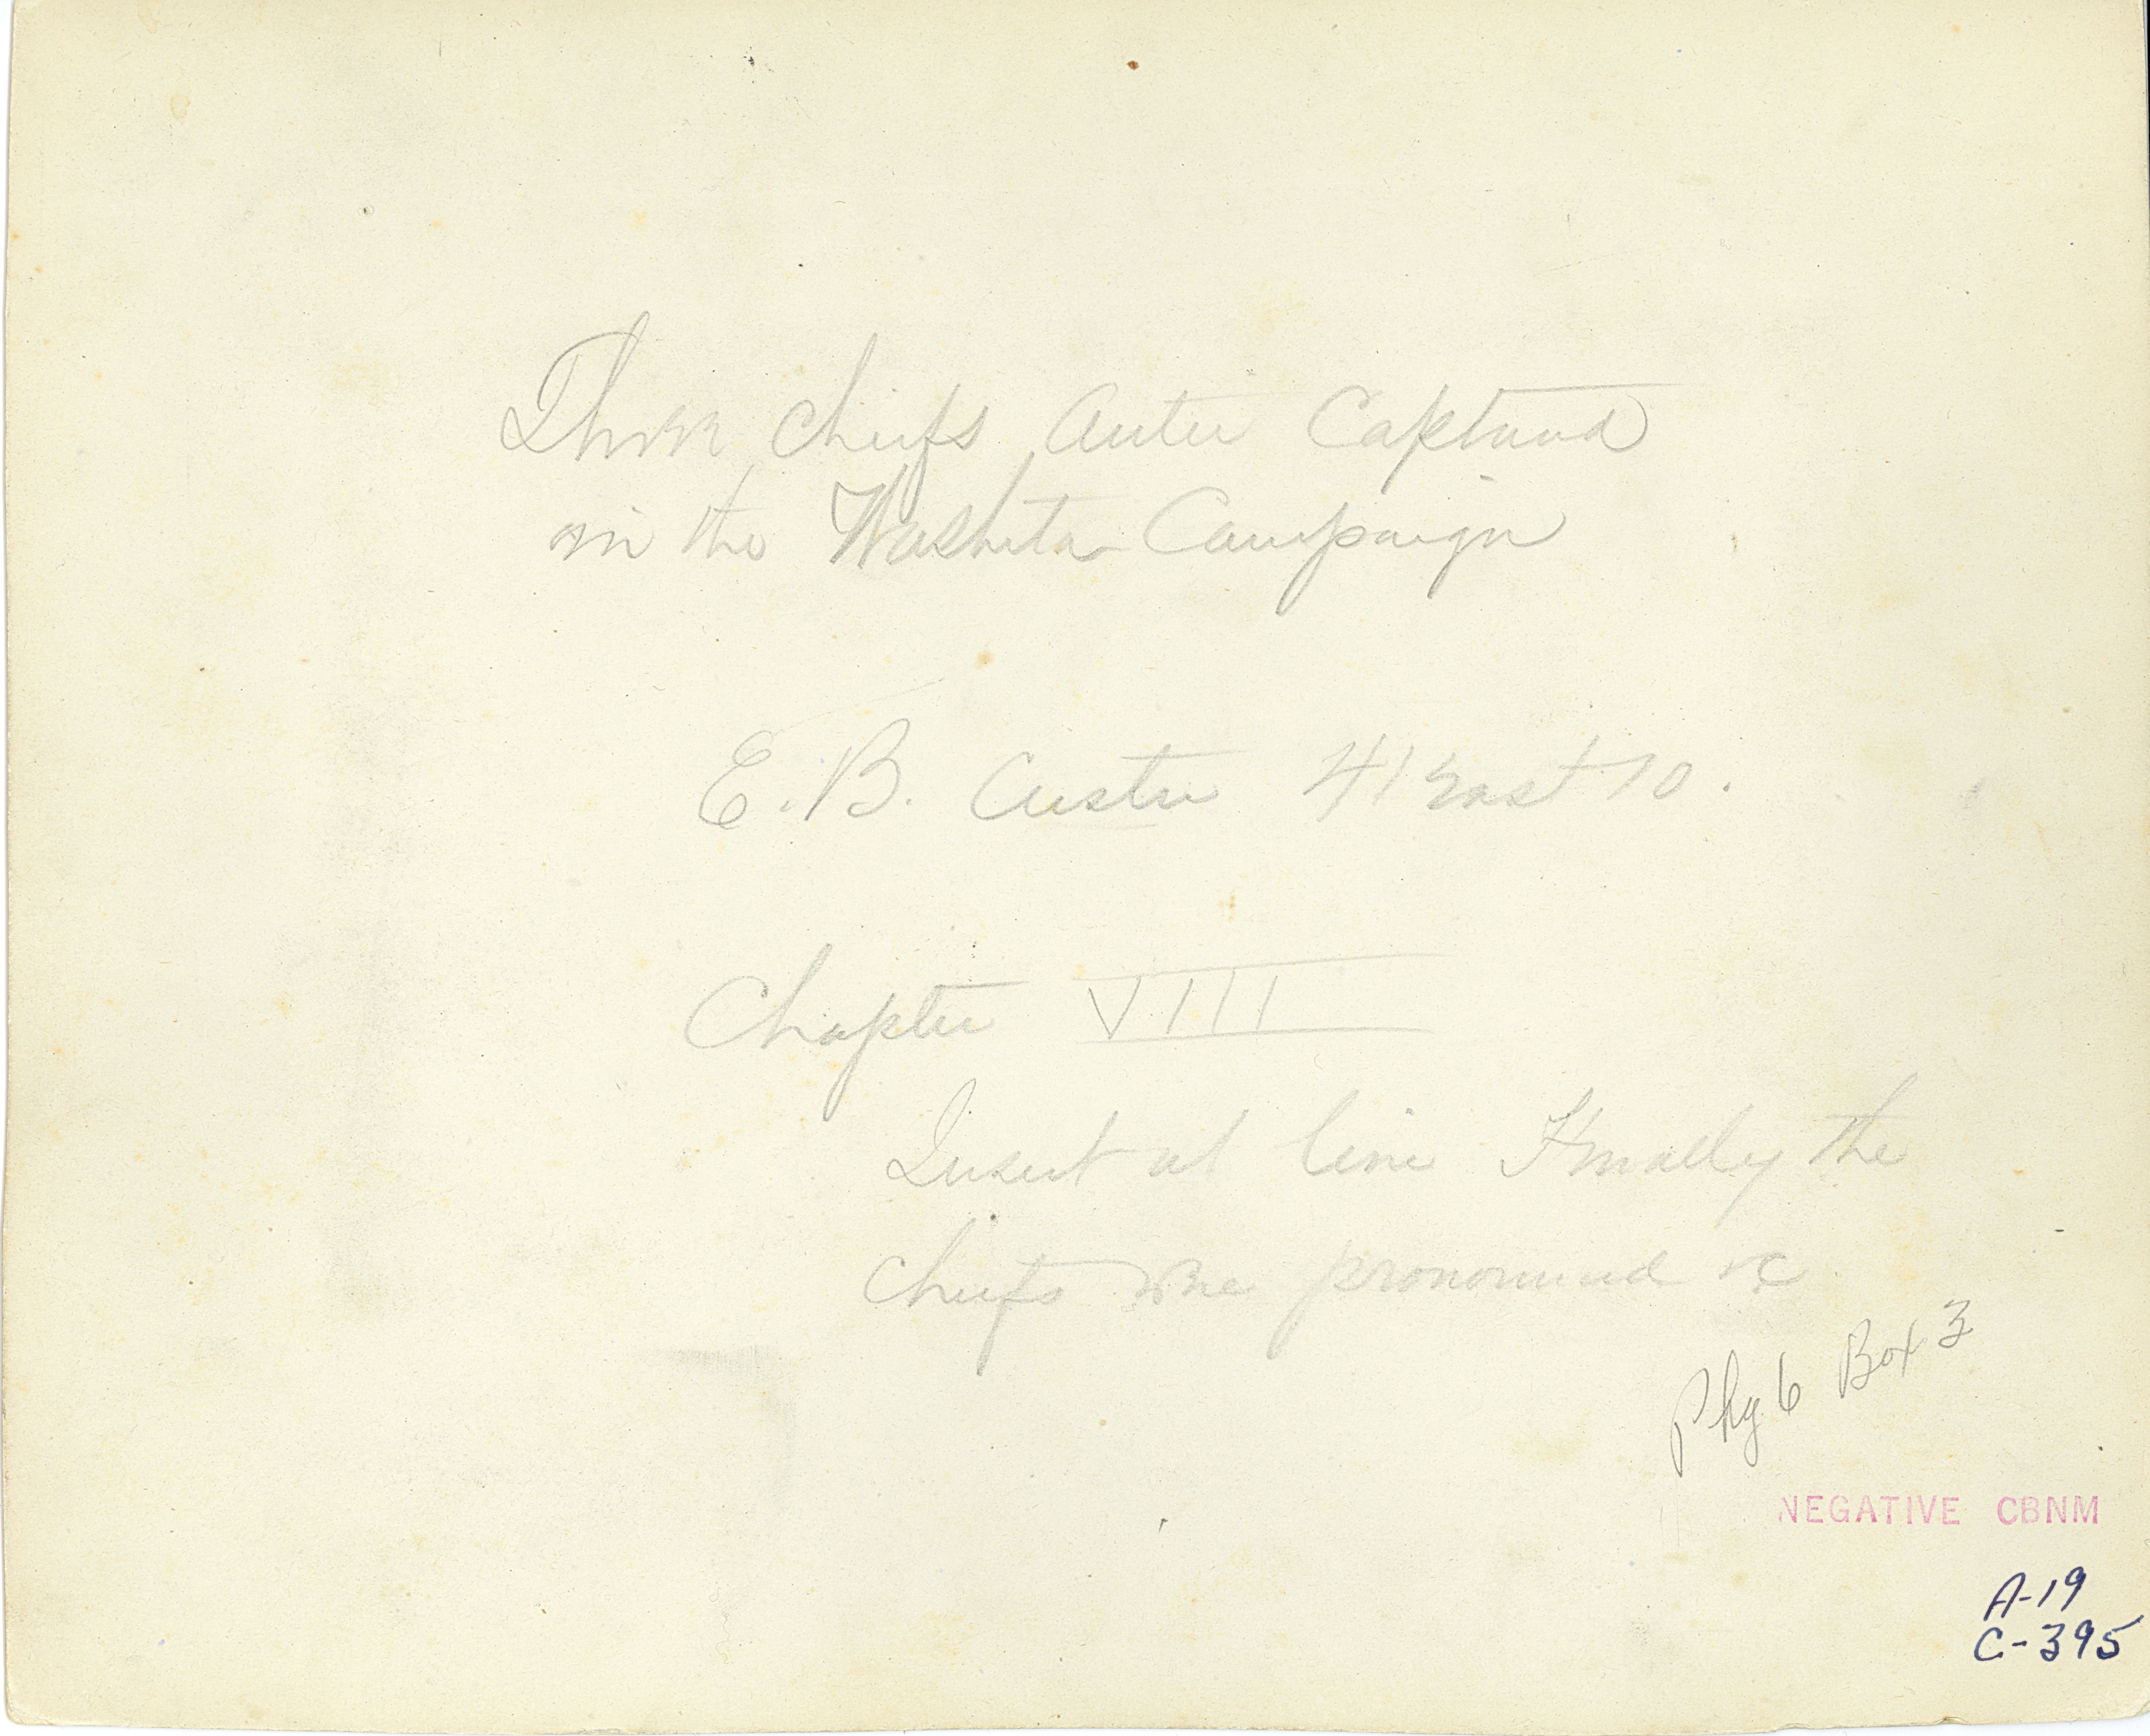 Three chiefs Custer Captured
in the Washita Campaign
E. B. Custer 41 East 10.
Chapter VIII
Insert at line Finally the
chiefs were pronounced &c
Phg 6 Box 3
NEGATIVE CBNM
A-19
C-395